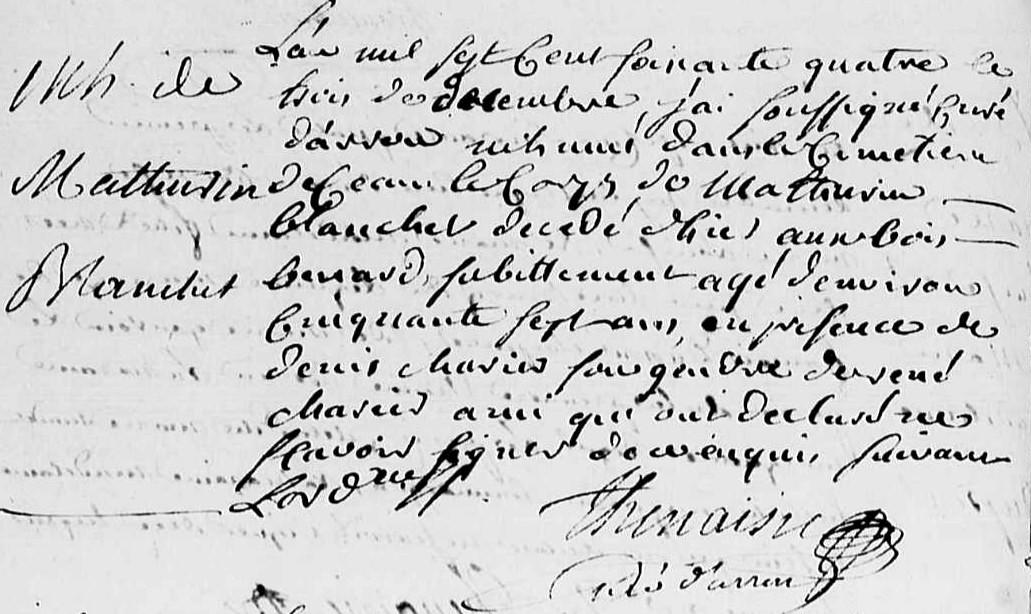 inh. de
Mathurin
Blanchet
L'an mil sept cent soixante quatre le
trois de decembre, j'ai soussigné curé
d'arrou inhumé dans le Cimetiere
de Ceans le Corps de Mathurin
blanchet decedé d'hier aux bois
benard subittement agé d'environ
Cinquante sept ans, en presence de
denis charier son gendre de rené
charier ami qui ont declaré ne
scavoir signer de ce enquis suivant
L'ord.nce
Thenaisie
Curé d'arrou